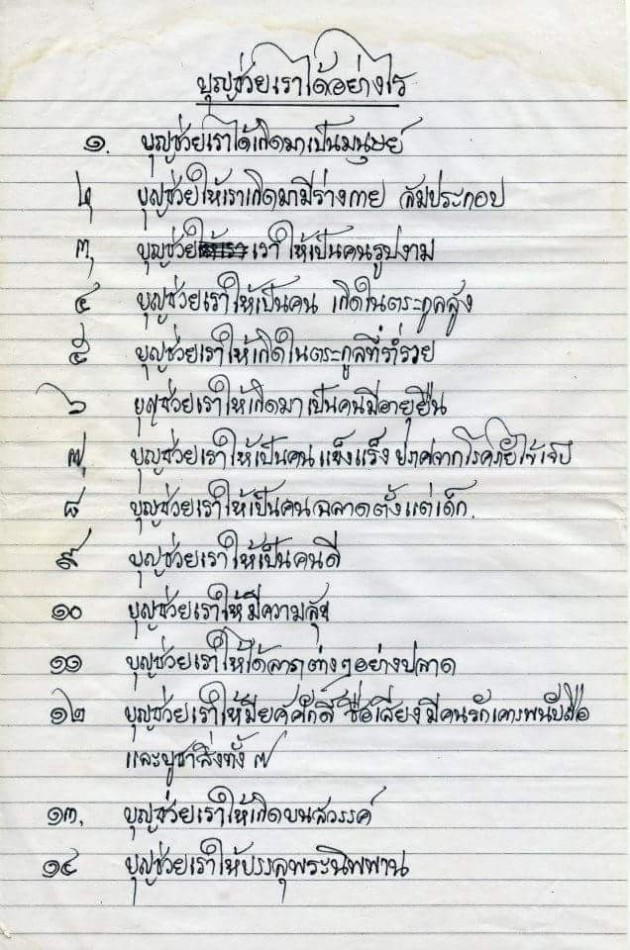 บุญช่วยเราได้อย่างไร
๑. บุญช่วยเราได้เกิดมาเป็นมนุษย์
๒ บุญช่วยให้เราเกิดมามีร่างกาย สมประกอบ
๓ บุญช่วยให้เรา เราให้เป็นคนรูปงาม
๔ บุญช่วยเราให้เป็นคน เกิดในตระกูลสูง
๕ บุญช่วยเราให้เกิดในตระกูลที่ร่ำรวย
๖ บุญช่วยเราให้เกิดมาเป็นคนมีอายุยืน
๗ บุญช่วยเราให้เป็นคนแข็งแร็ง ปราศจากโรคภัยไข้เจ็บ
๘ บุญช่วยเราให้เป็นคนฉลาดตั้งแต่เด็ก.
๙ บุญช่วยเราให้เป็นคนดี
๑๐ บุญช่วยเราให้มีความสุข
๑๑ บุญช่วยเราให้ได้ลาภต่างๆอย่างปลาด
๑๒ บุญช่วยเราให้มียศศักดิ์ ชื่อเสียง มีคนรักเคารพนับถือ
และบูชาสิ่งทั้ง ๗
๑๓. บุญช่วยเราให้เกิดบนสวรรค์
๑๔ บุญช่วยเราให้บรรลุพระนิพพาน